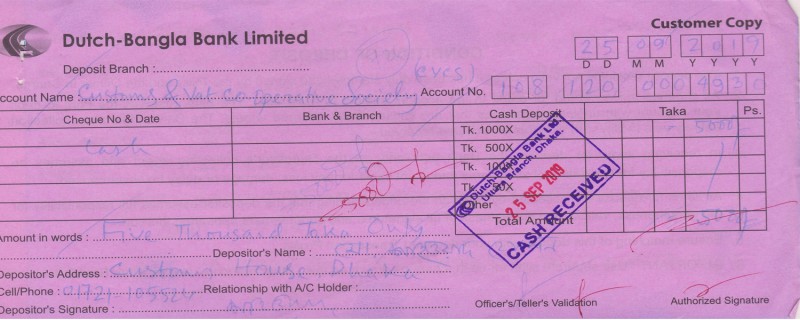 Customer Copy
Dutch-Bangla Bank Limited
25 09 2019
D D M M Y Y Y Y
Deposit Branch :
(CVCS)
Account Name : Customs & Vat Co operative Society Account No. 108 120 000 4930
Cheque No & Date Bank & Branch Cash Deposit Taka Ps.
Tk. 1000X 5000/
Cash Tk. 500X
Tk. 100X
5000
Tk. 50X
Other
Total Amount
Dutch-Bangla Bank Ltd.
Uttara Branch, Dhaka.
25 SEP 2019
CASH RECEIVED
Amount in words : Five Thousand Taka Only
Depositor's Name :
Depositor's Address : Customs House Dhaka
Cell/Phone : 01721 105524 Relationship with A/C Holder :
Depositor's Signature :
Officer's/Teller's Validation Authorized Signature